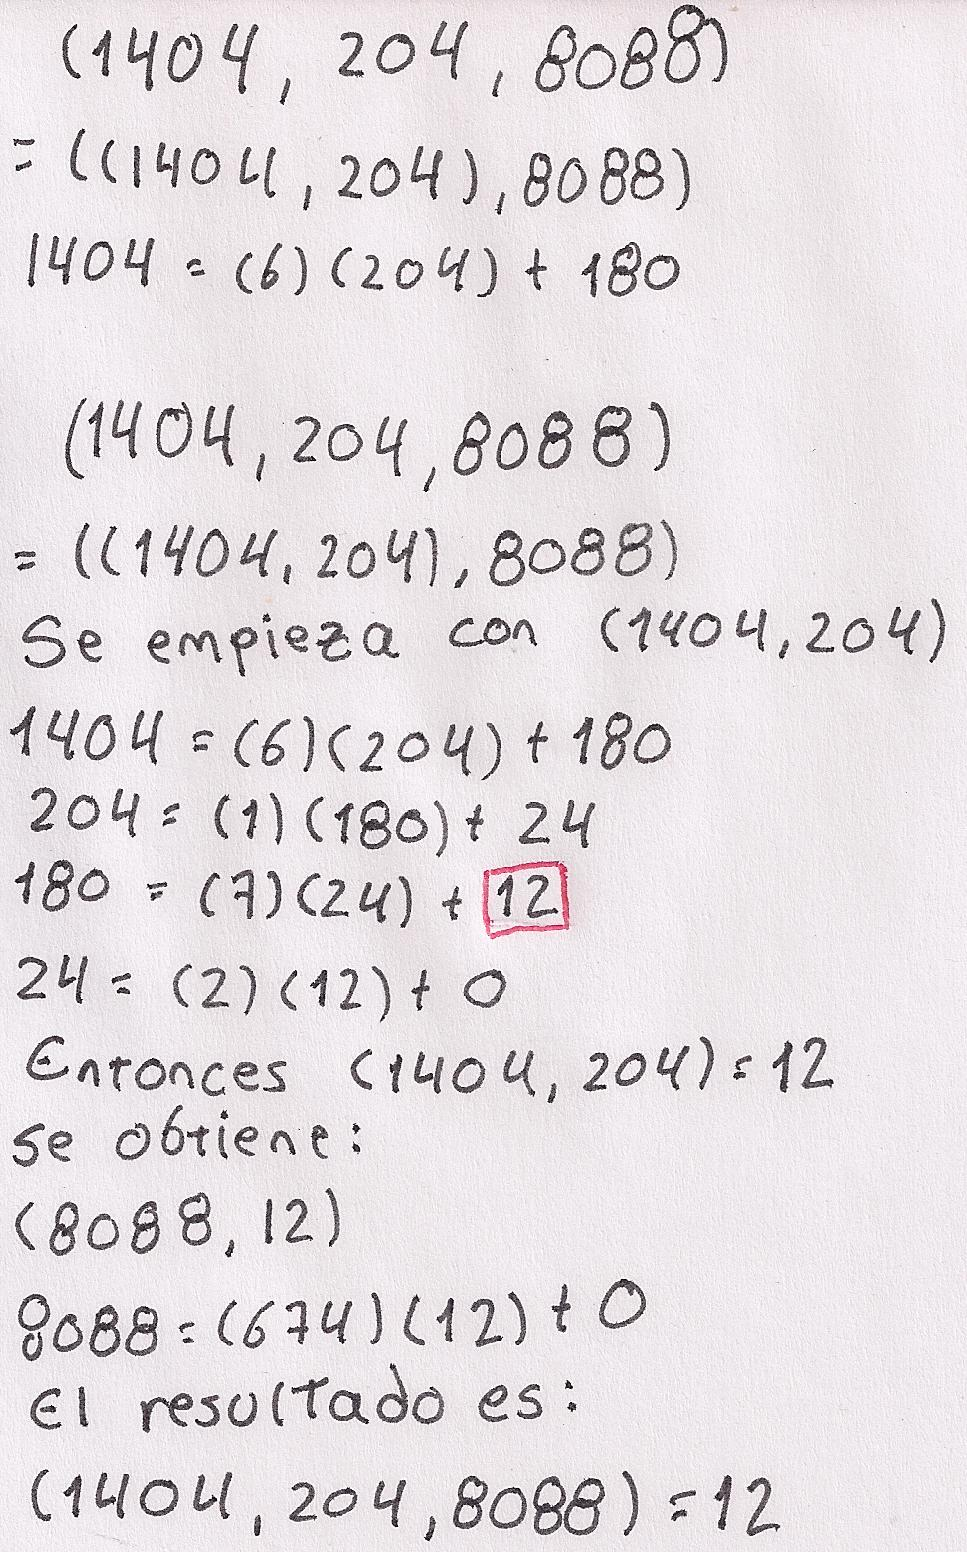 (1404, 204, 8088)
= ((1404, 204), 8088)
1404 = (6)(204) + 180
(1404, 204, 8088)
= ((1404, 204), 8088)
Se empieza con (1404, 204)
1404 = (6)(204) + 180
204 = (1)(180) + 24
180 = (7)(24) + 12
24 = (2)(12) + 0
Entonces (1404, 204) = 12
se obtiene:
(8088, 12)
8088 = (674)(12) + 0
El resultado es:
(1404, 204, 8088) = 12